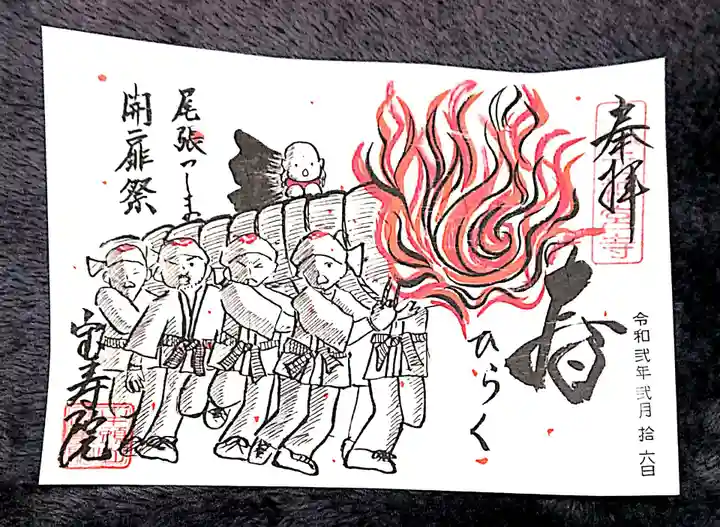 奉拝
寿
ひらく
令和弐年弐月拾六日
尾張つしま
開扉祭
宝寿院